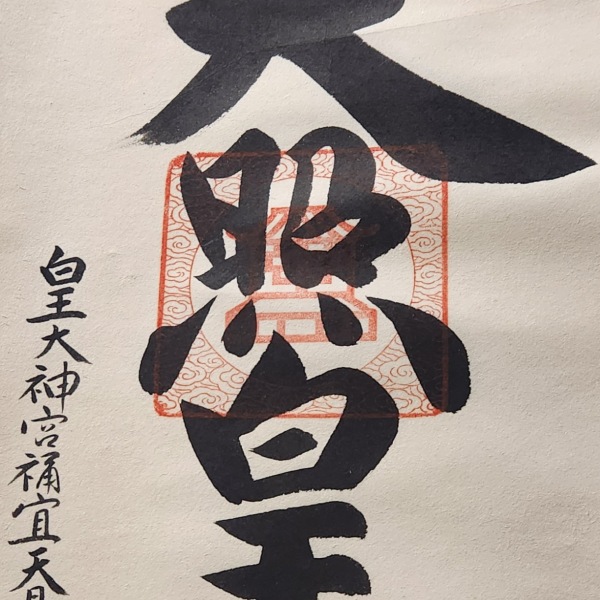 天照皇
皇大神宮禰宜天